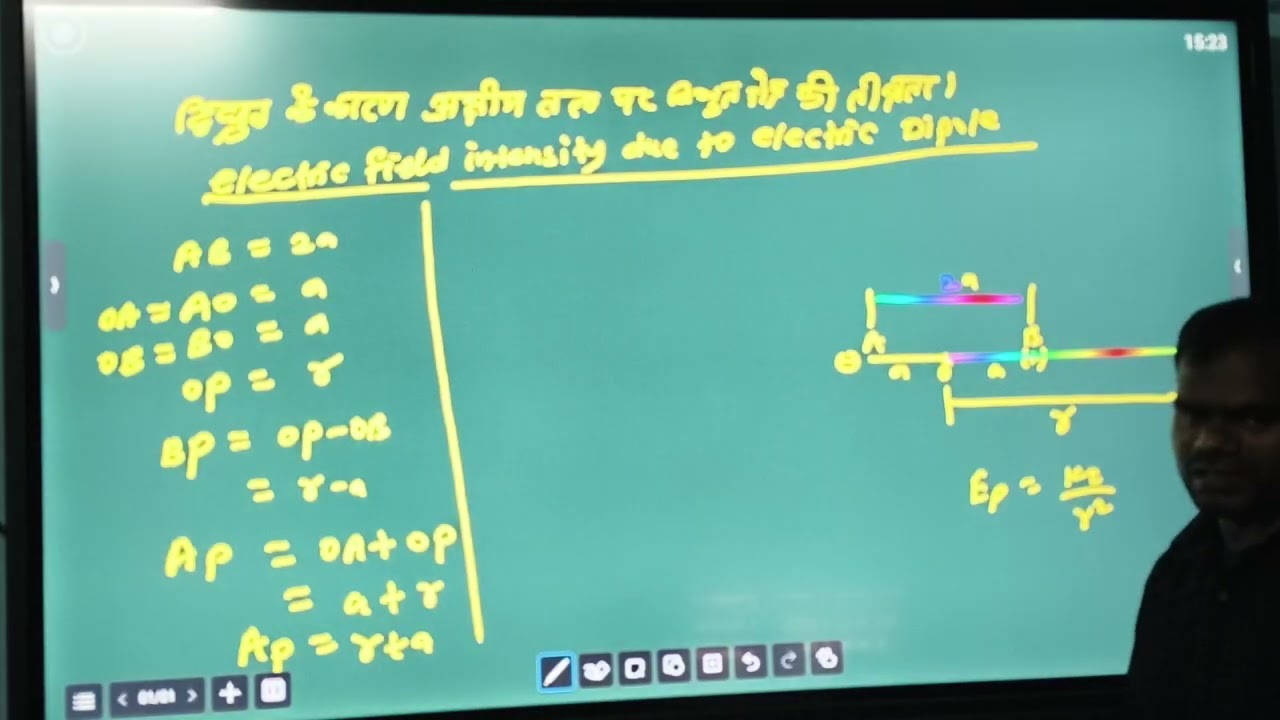 15:23
के कारण अक्षीय पर की तीव्रता।
electric field intensity due to electric Dipole
AB = 2a
OA = AO = a
OB = BO = a
OP = r
BP = OP-OB
= r-a
AP = OA+OP
= a+r
AP = r+a
2a
A B
a o a
r
Ep = Kq/r²
01/01